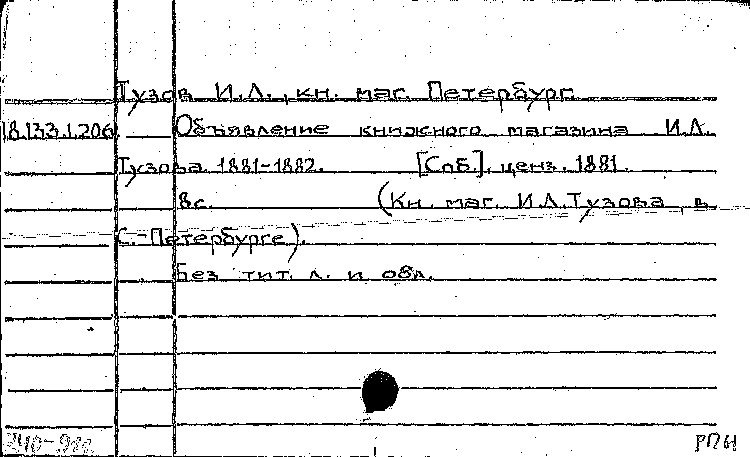 Тузов И.Л., кн. маг. Петербург.
18.133.1.206 Объявление книжного магазина И.Л.
Тузова 1881-1882. [Спб.], ценз. 1881.
8с. (Кн. маг. И.Л. Тузова в
С.-Петербурге).
Без тит. л. и обл.
РПН